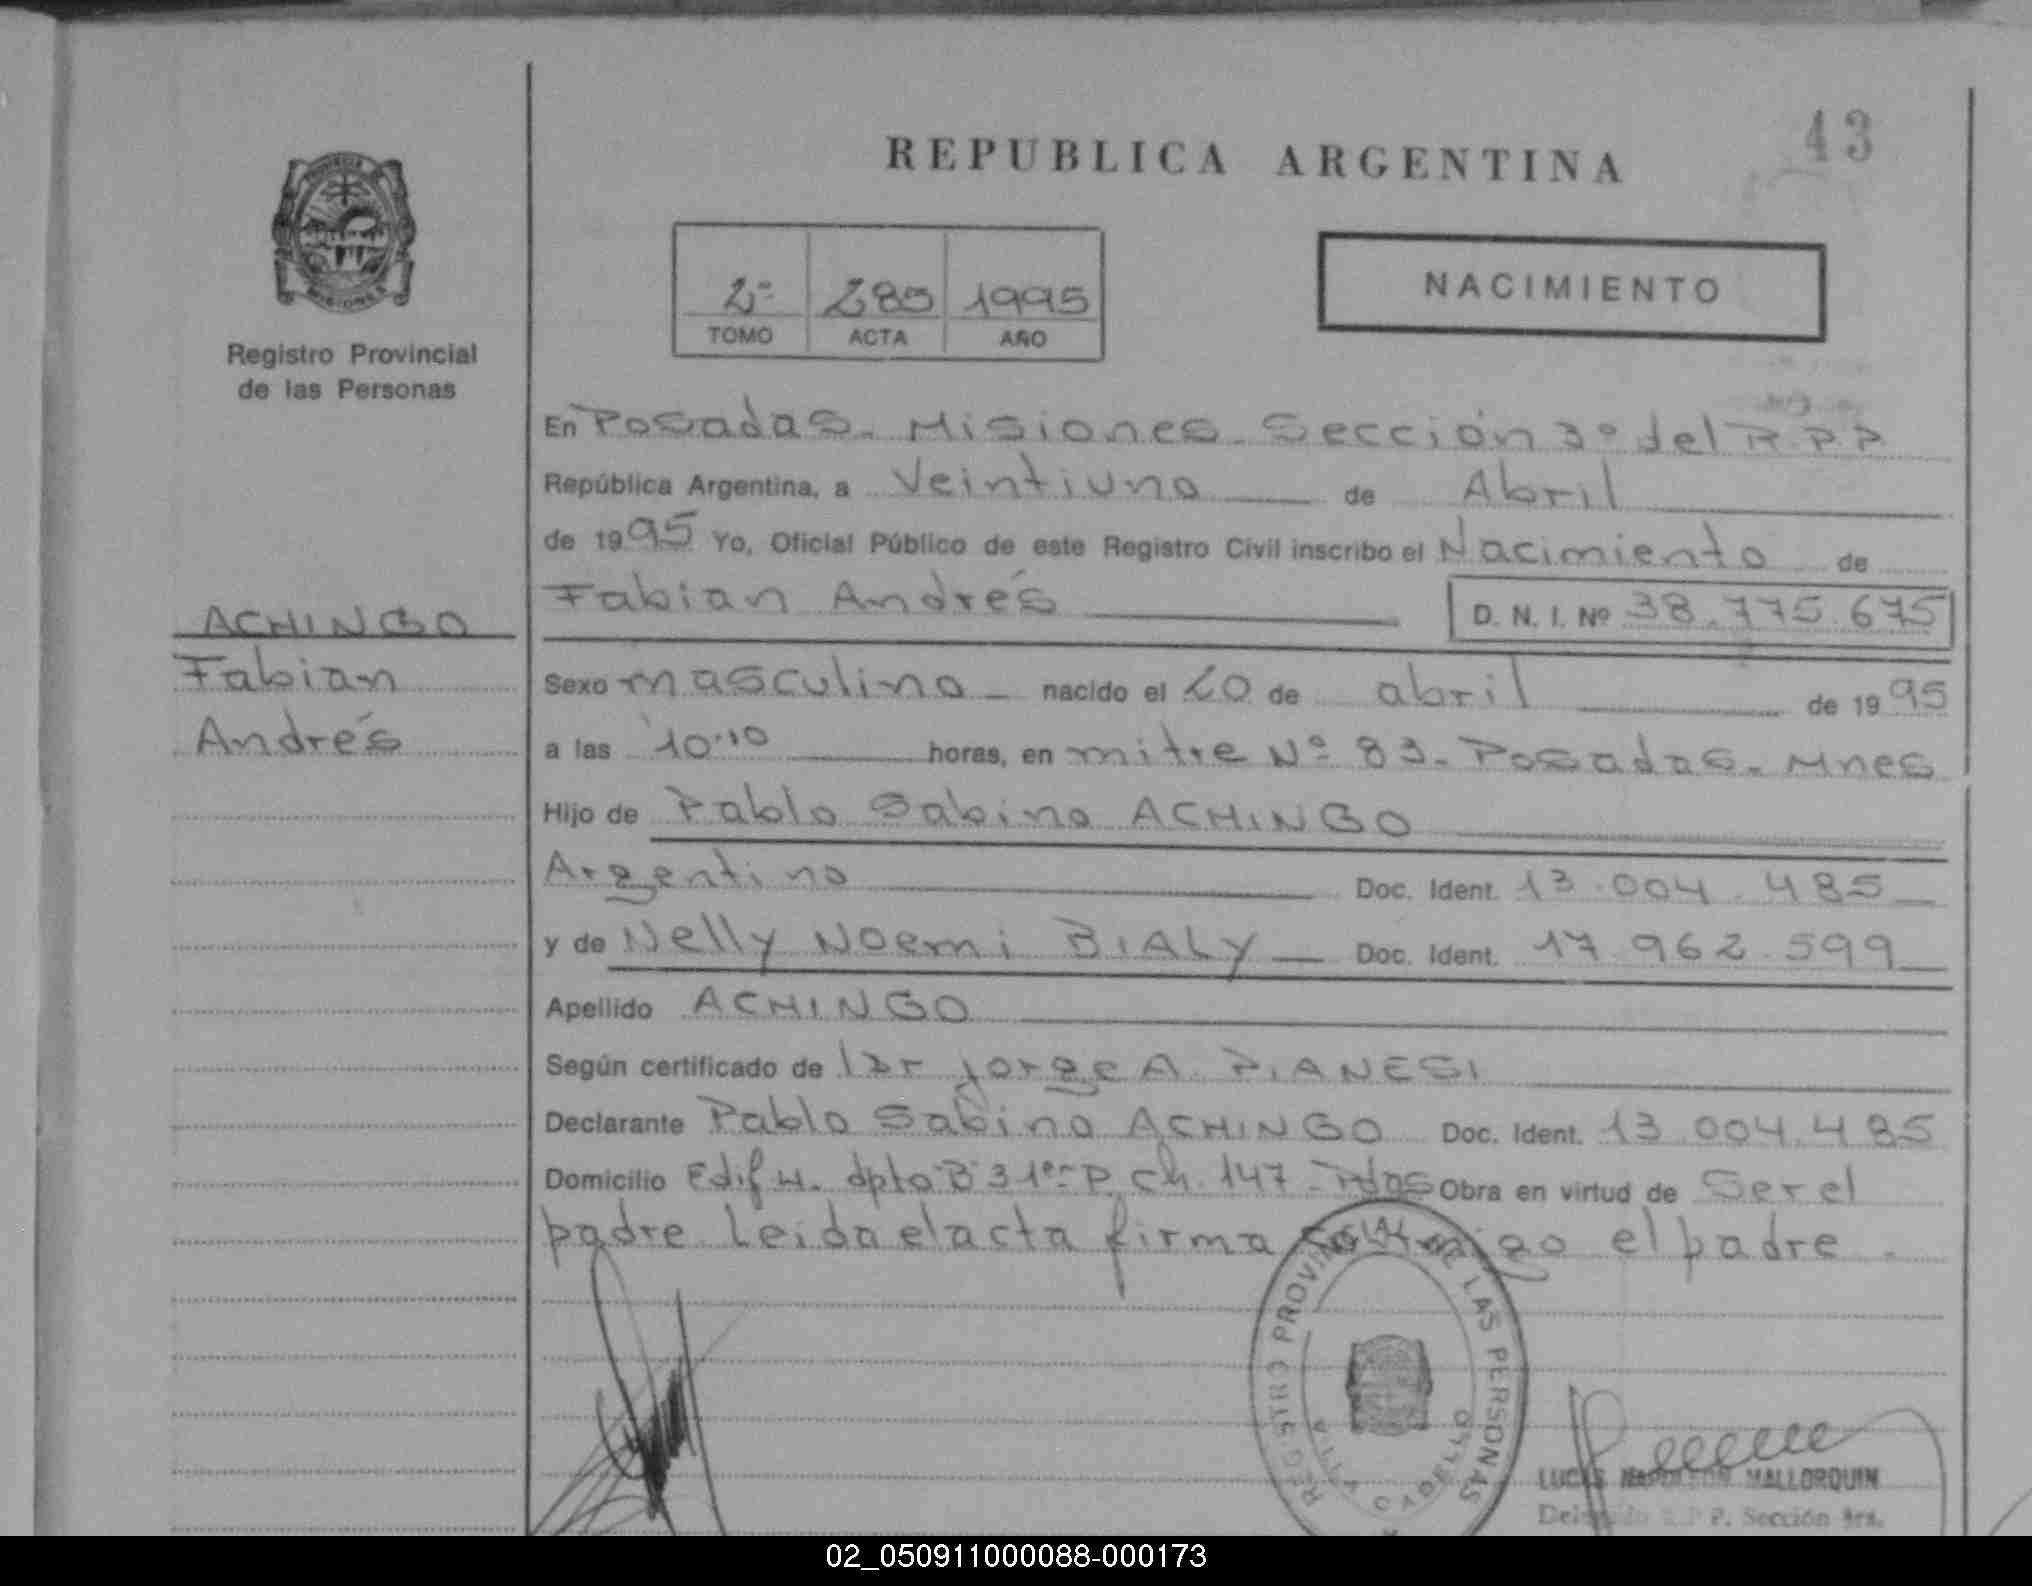 43
REPUBLICA ARGENTINA
PROVINCIA DE
MISIONES
Registro Provincial
de las Personas
2º 285 1995
TOMO ACTA AÑO
NACIMIENTO
En Posadas. Misiones. Sección 3º del R.P.P
República Argentina, a Veintiuno de Abril
de 1995 Yo, Oficial Público de este Registro Civil inscribo el Nacimiento de
Fabian Andrés D. N. I. Nº 38.775.675
ACHINGO
Fabian
Andrés
Sexo masculino nacido el 20 de abril de 1995
a las 10.10 horas, en mitre Nº 83. Posadas. Mnes
Hijo de Pablo Sabino ACHINGO
Argentino Doc. Ident. 13.004.485
y de Nelly Noemi BIALY Doc. Ident. 17.962.599
Apellido ACHINGO
Según certificado de Dr Jorge A. PIANESI
Declarante Pablo Sabino ACHINGO Doc. Ident. 13.004.485
Domicilio Edif H. dpto B 3 1er P. ch. 147 - Pdas Obra en virtud de Ser el
padre. Leida el acta firma conmigo el padre.
REGISTRO PROVINCIAL DE LAS PERSONAS
LUCAS NAPOLEON MALLORQUIN
Delegado R.P.P. Sección 3ra.
02_050911000088-000173